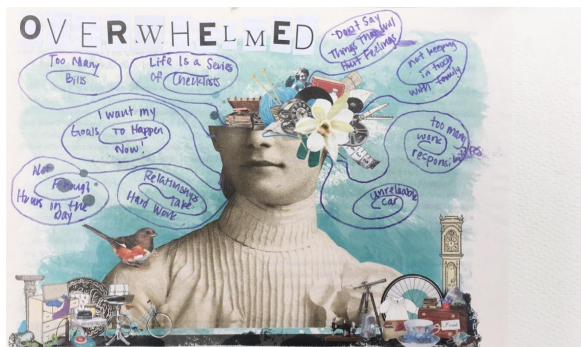 OVERWHELMED
Too Many
Bills
Life Is a Series
Of Checklists
Don't Say
Hurt Feelings
not keeping
in touch
with family
I want my
Goals To Happen
Now!
too many
work
Not
Enough
Hours in the
Day
Relationships
Take
Hard Work
unreliable
car